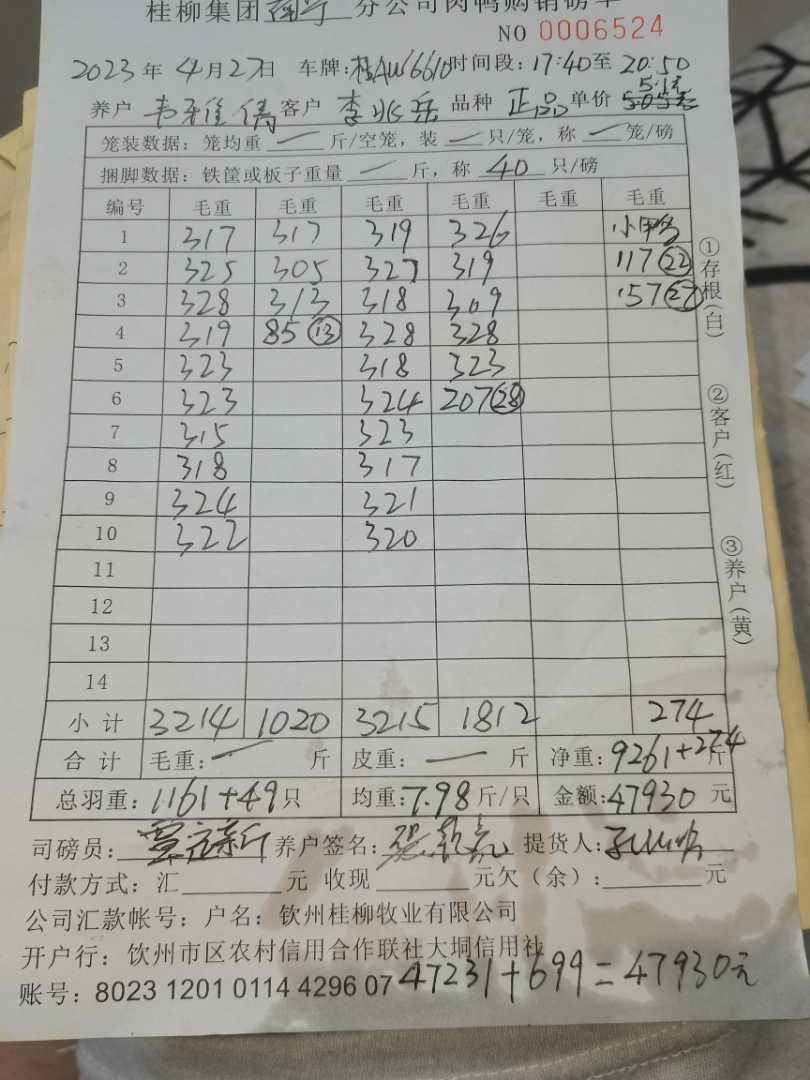 桂柳集团南宁分公司肉鸭购销磅单
NO 0006524
2023年4月27日 车牌:桂AW6610 时间段:17:40至20:50
养户 客户 李 品种 正品 单价 5.1元 5.05元
笼装数据: 笼均重 — 斤/空笼, 装 — 只/笼, 称 — 笼/磅
捆脚数据: 铁筐或板子重量 — 斤, 称 40 只/磅
编号 毛重 毛重 毛重 毛重 毛重 毛重
1 317 317 319 326 小鸭
2 325 305 327 319 117 22
3 328 313 318 309 157 27
4 319 85 13 328 328
5 323 318 323
6 323 324 207 28
7 315 323
8 318 317
9 324 321
10 322 320
11
12
13
14
小计 3214 1020 3215 1812 274
合计 毛重: — 斤 皮重: — 斤 净重: 9261+274斤
总羽重: 1161+49只 均重: 7.98斤/只 金额: 47930元
司磅员: 养户签名: 提货人:
付款方式: 汇 元 收现 元欠(余): 元
公司汇款帐号: 户名: 钦州桂柳牧业有限公司
开户行: 钦州市区农村信用合作联社大垌信用社
账号: 8023 1201 0114 4296 07 47231+699=47930元
①存根(白)
②客户(红)
③养户(黄)